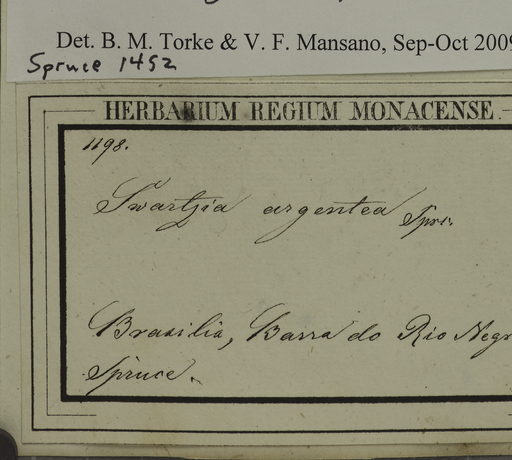 Det. B. M. Torke & V. F. Mansano, Sep-Oct 2009
Spruce 1452
HERBARIUM REGIUM MONACENSE.
1198.
Swartzia argentea Spr.
Brasilia, Barra do Rio Negr
Spruce.